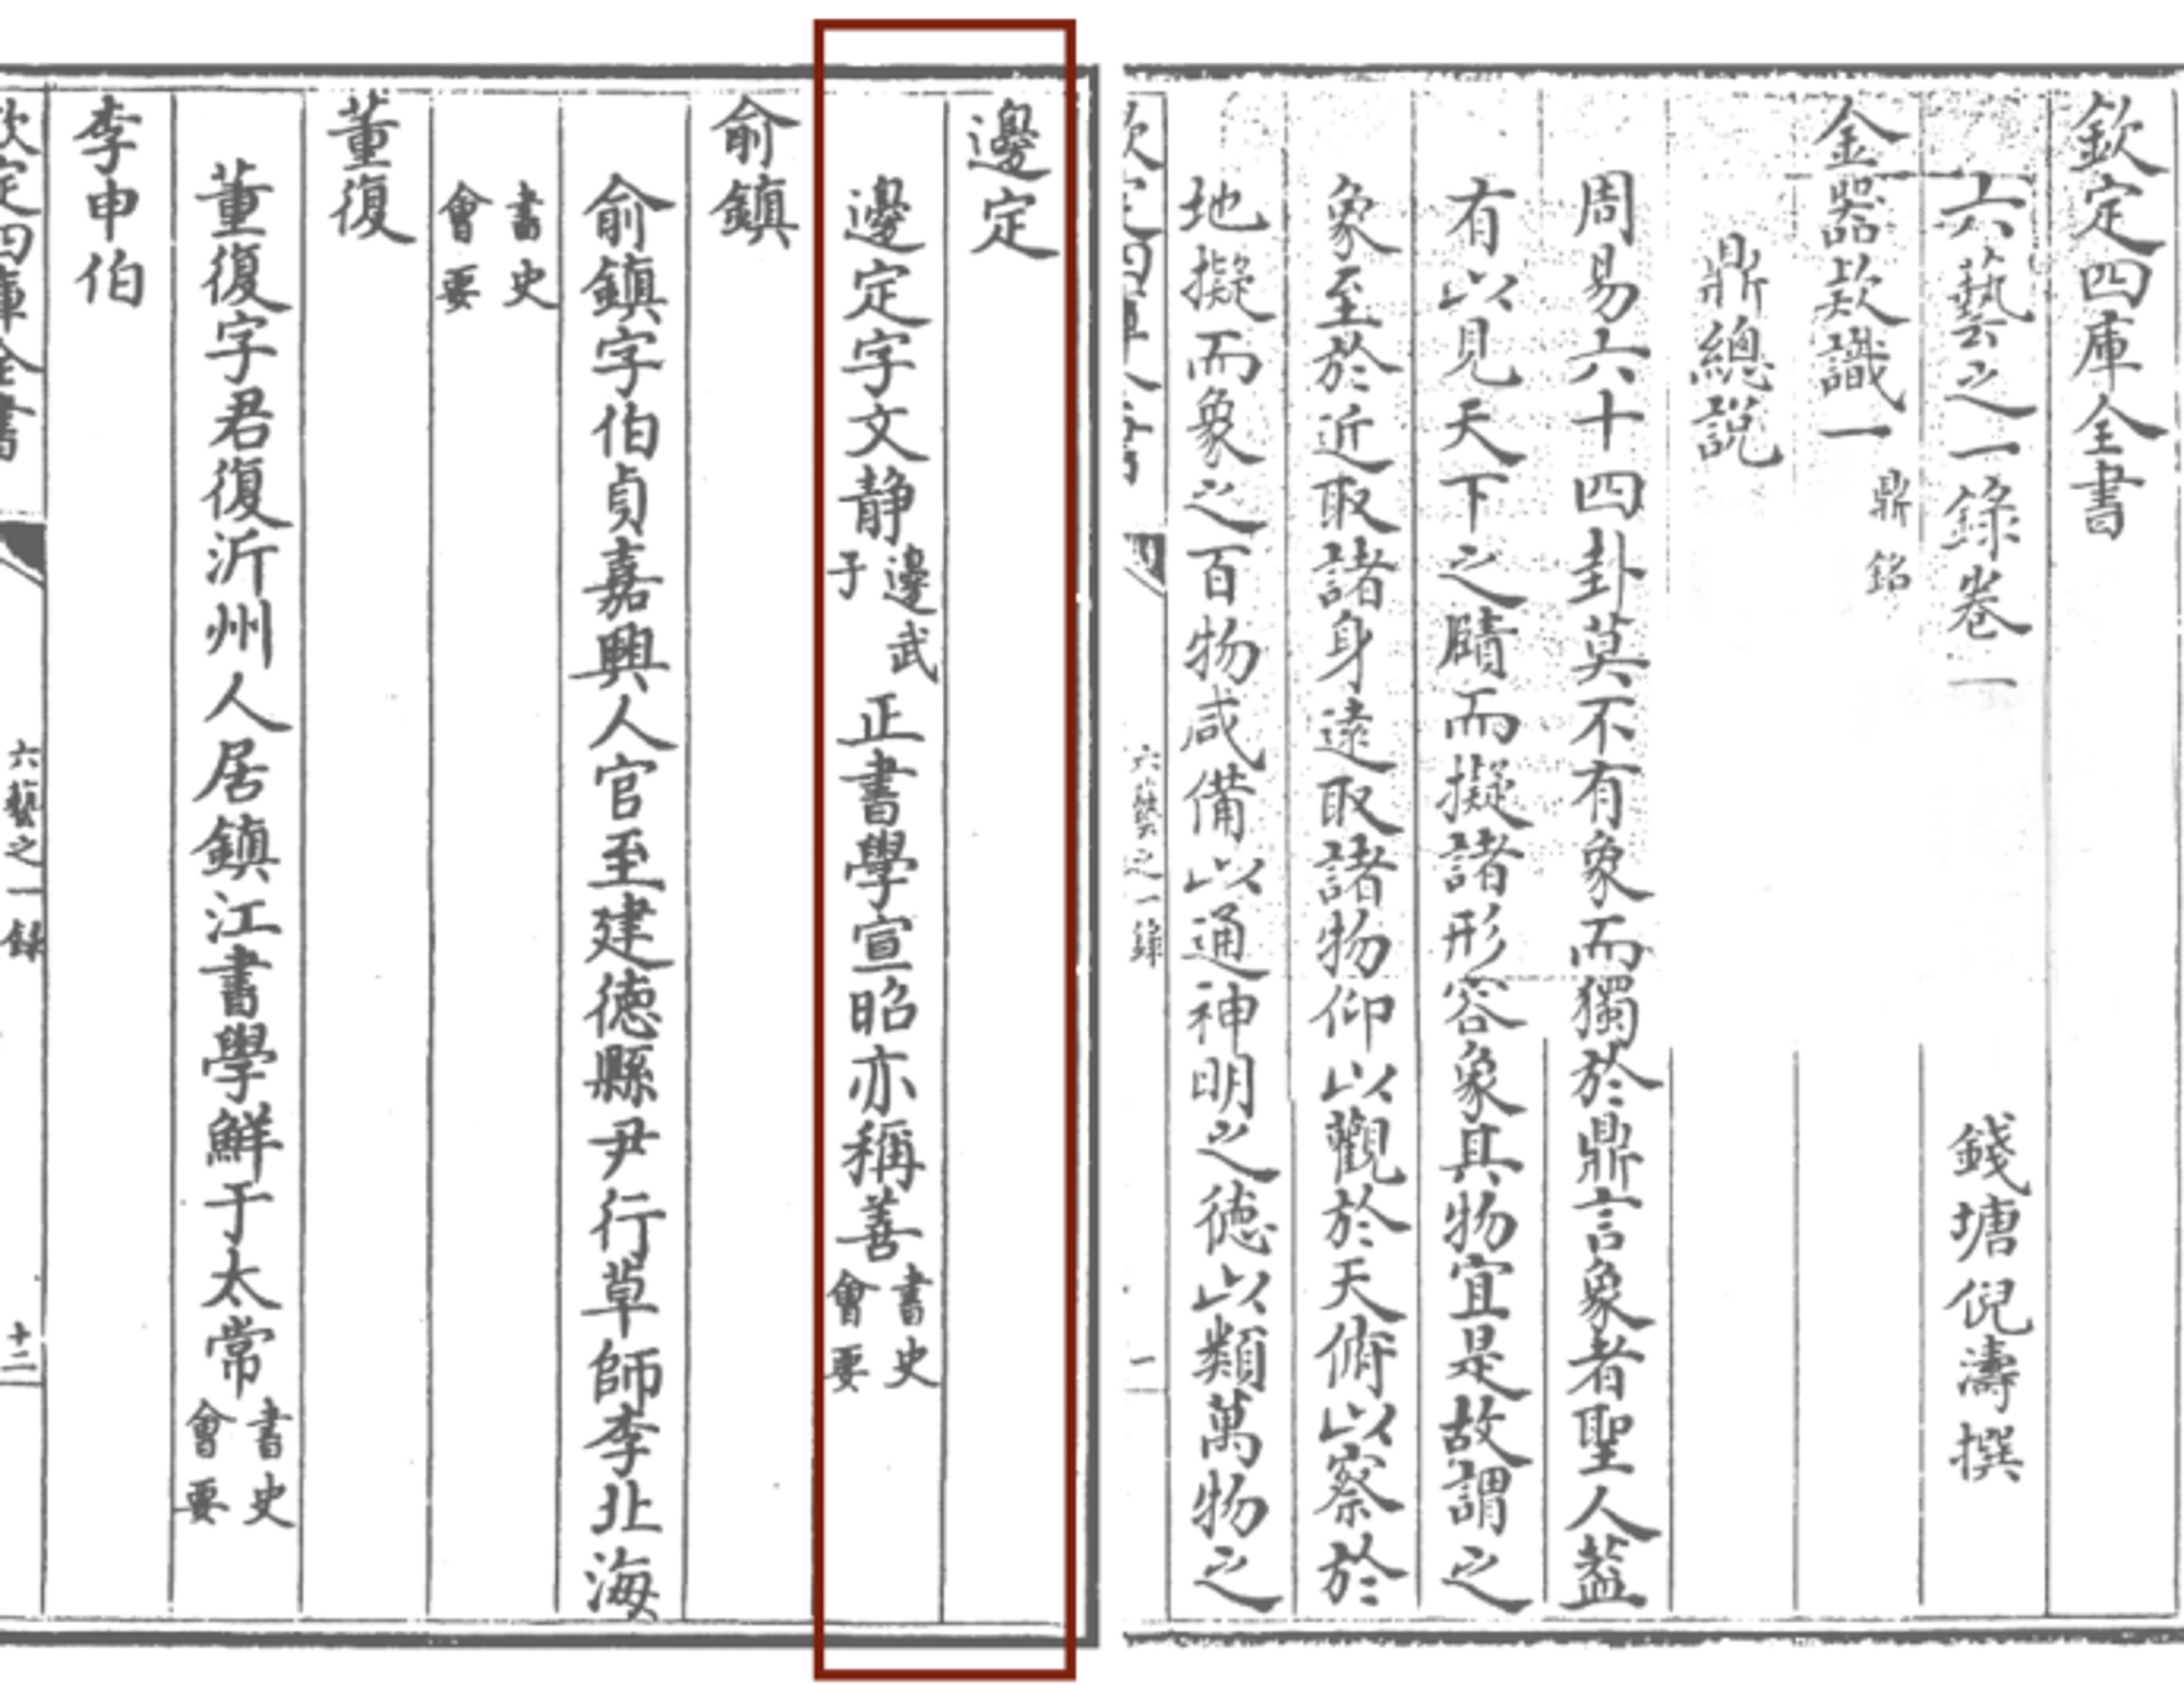 欽定四庫全書
六藝之一錄卷一
錢塘倪濤撰
金器款識一 鼎銘
鼎總說
周易六十四卦莫不有象而獨於鼎言象者聖人蓋
有以見天下之賾而擬諸形容象其物宜是故謂之
象至於近取諸身遠取諸物仰以觀於天俯以察於
地擬而象之百物咸備以通神明之德以類萬物之
六藝之一錄
一
邊定
邊定字文静邊武子正書學宣昭亦稱善書史會要
俞鎮
俞鎮字伯貞嘉興人官至建德縣尹行草師李北海
書史會要
董復
董復字君復沂州人居鎮江書學鮮于太常書史會要
李申伯
欽定四庫全書
六藝之一錄
十二